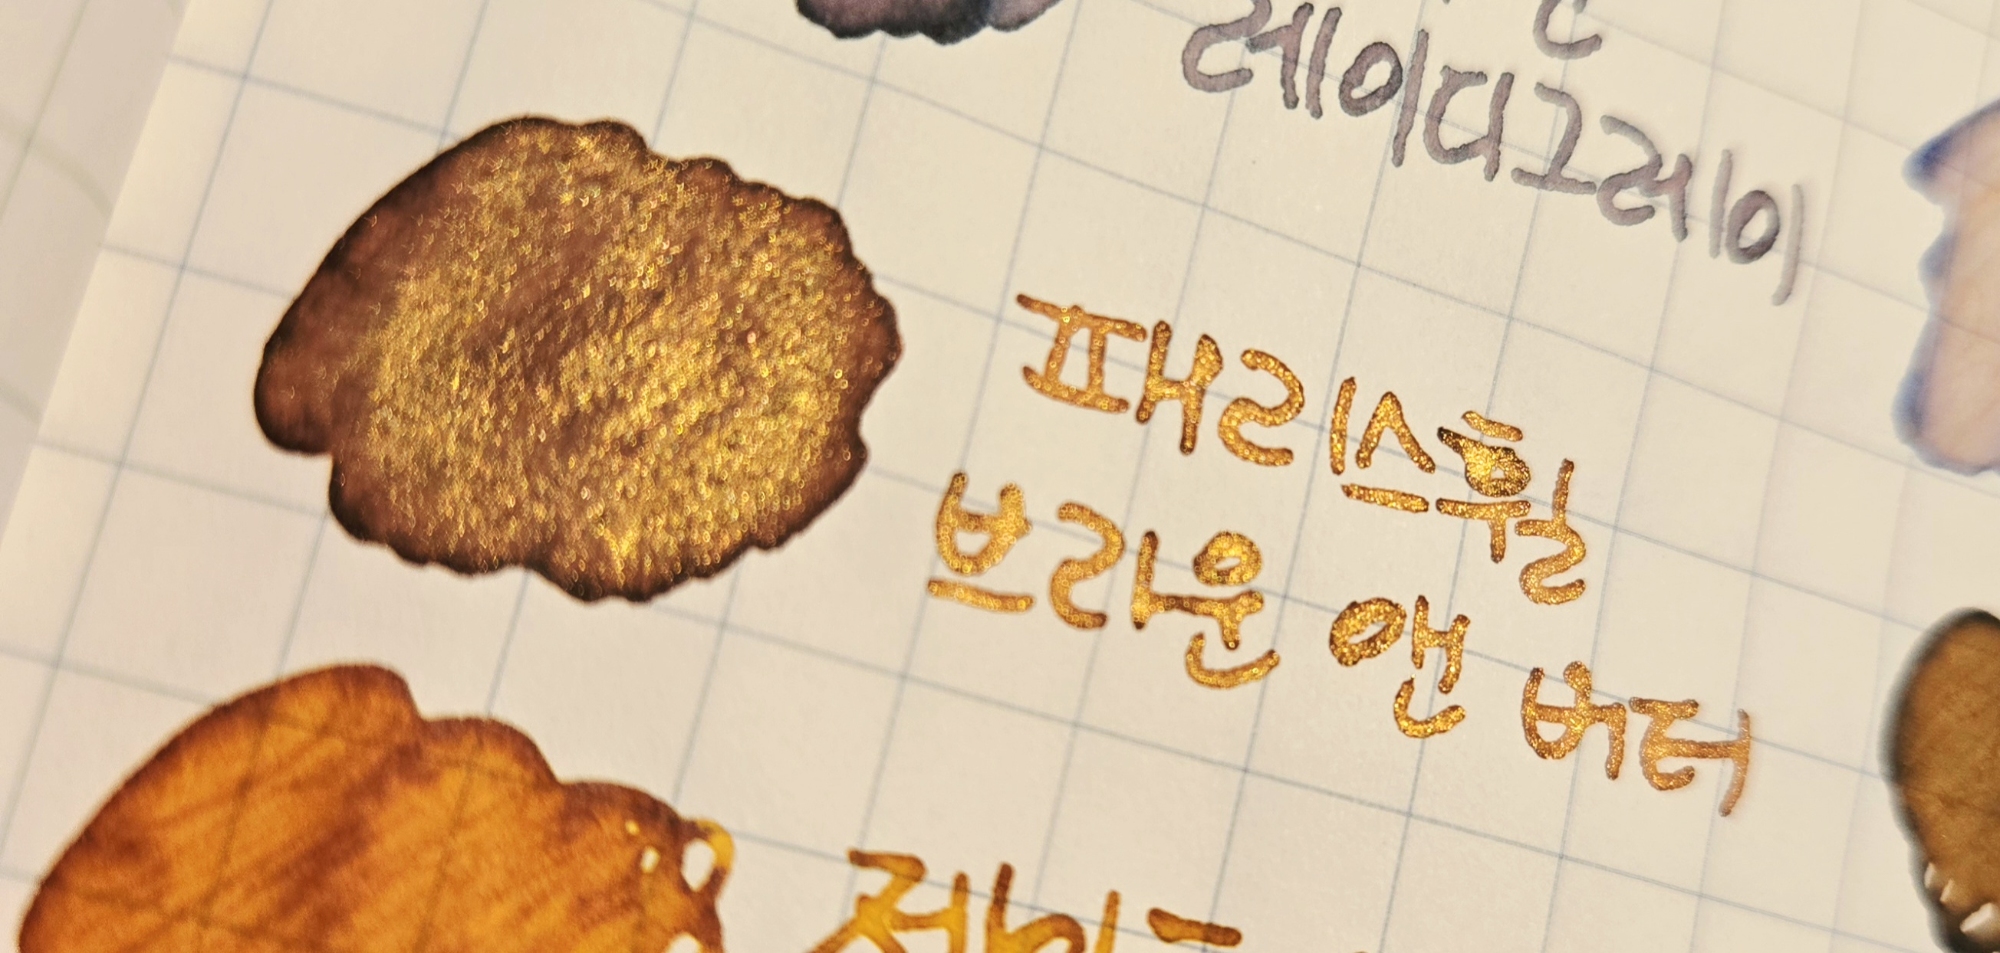 레이디그레이
패리스휠
브라운 앤 버터